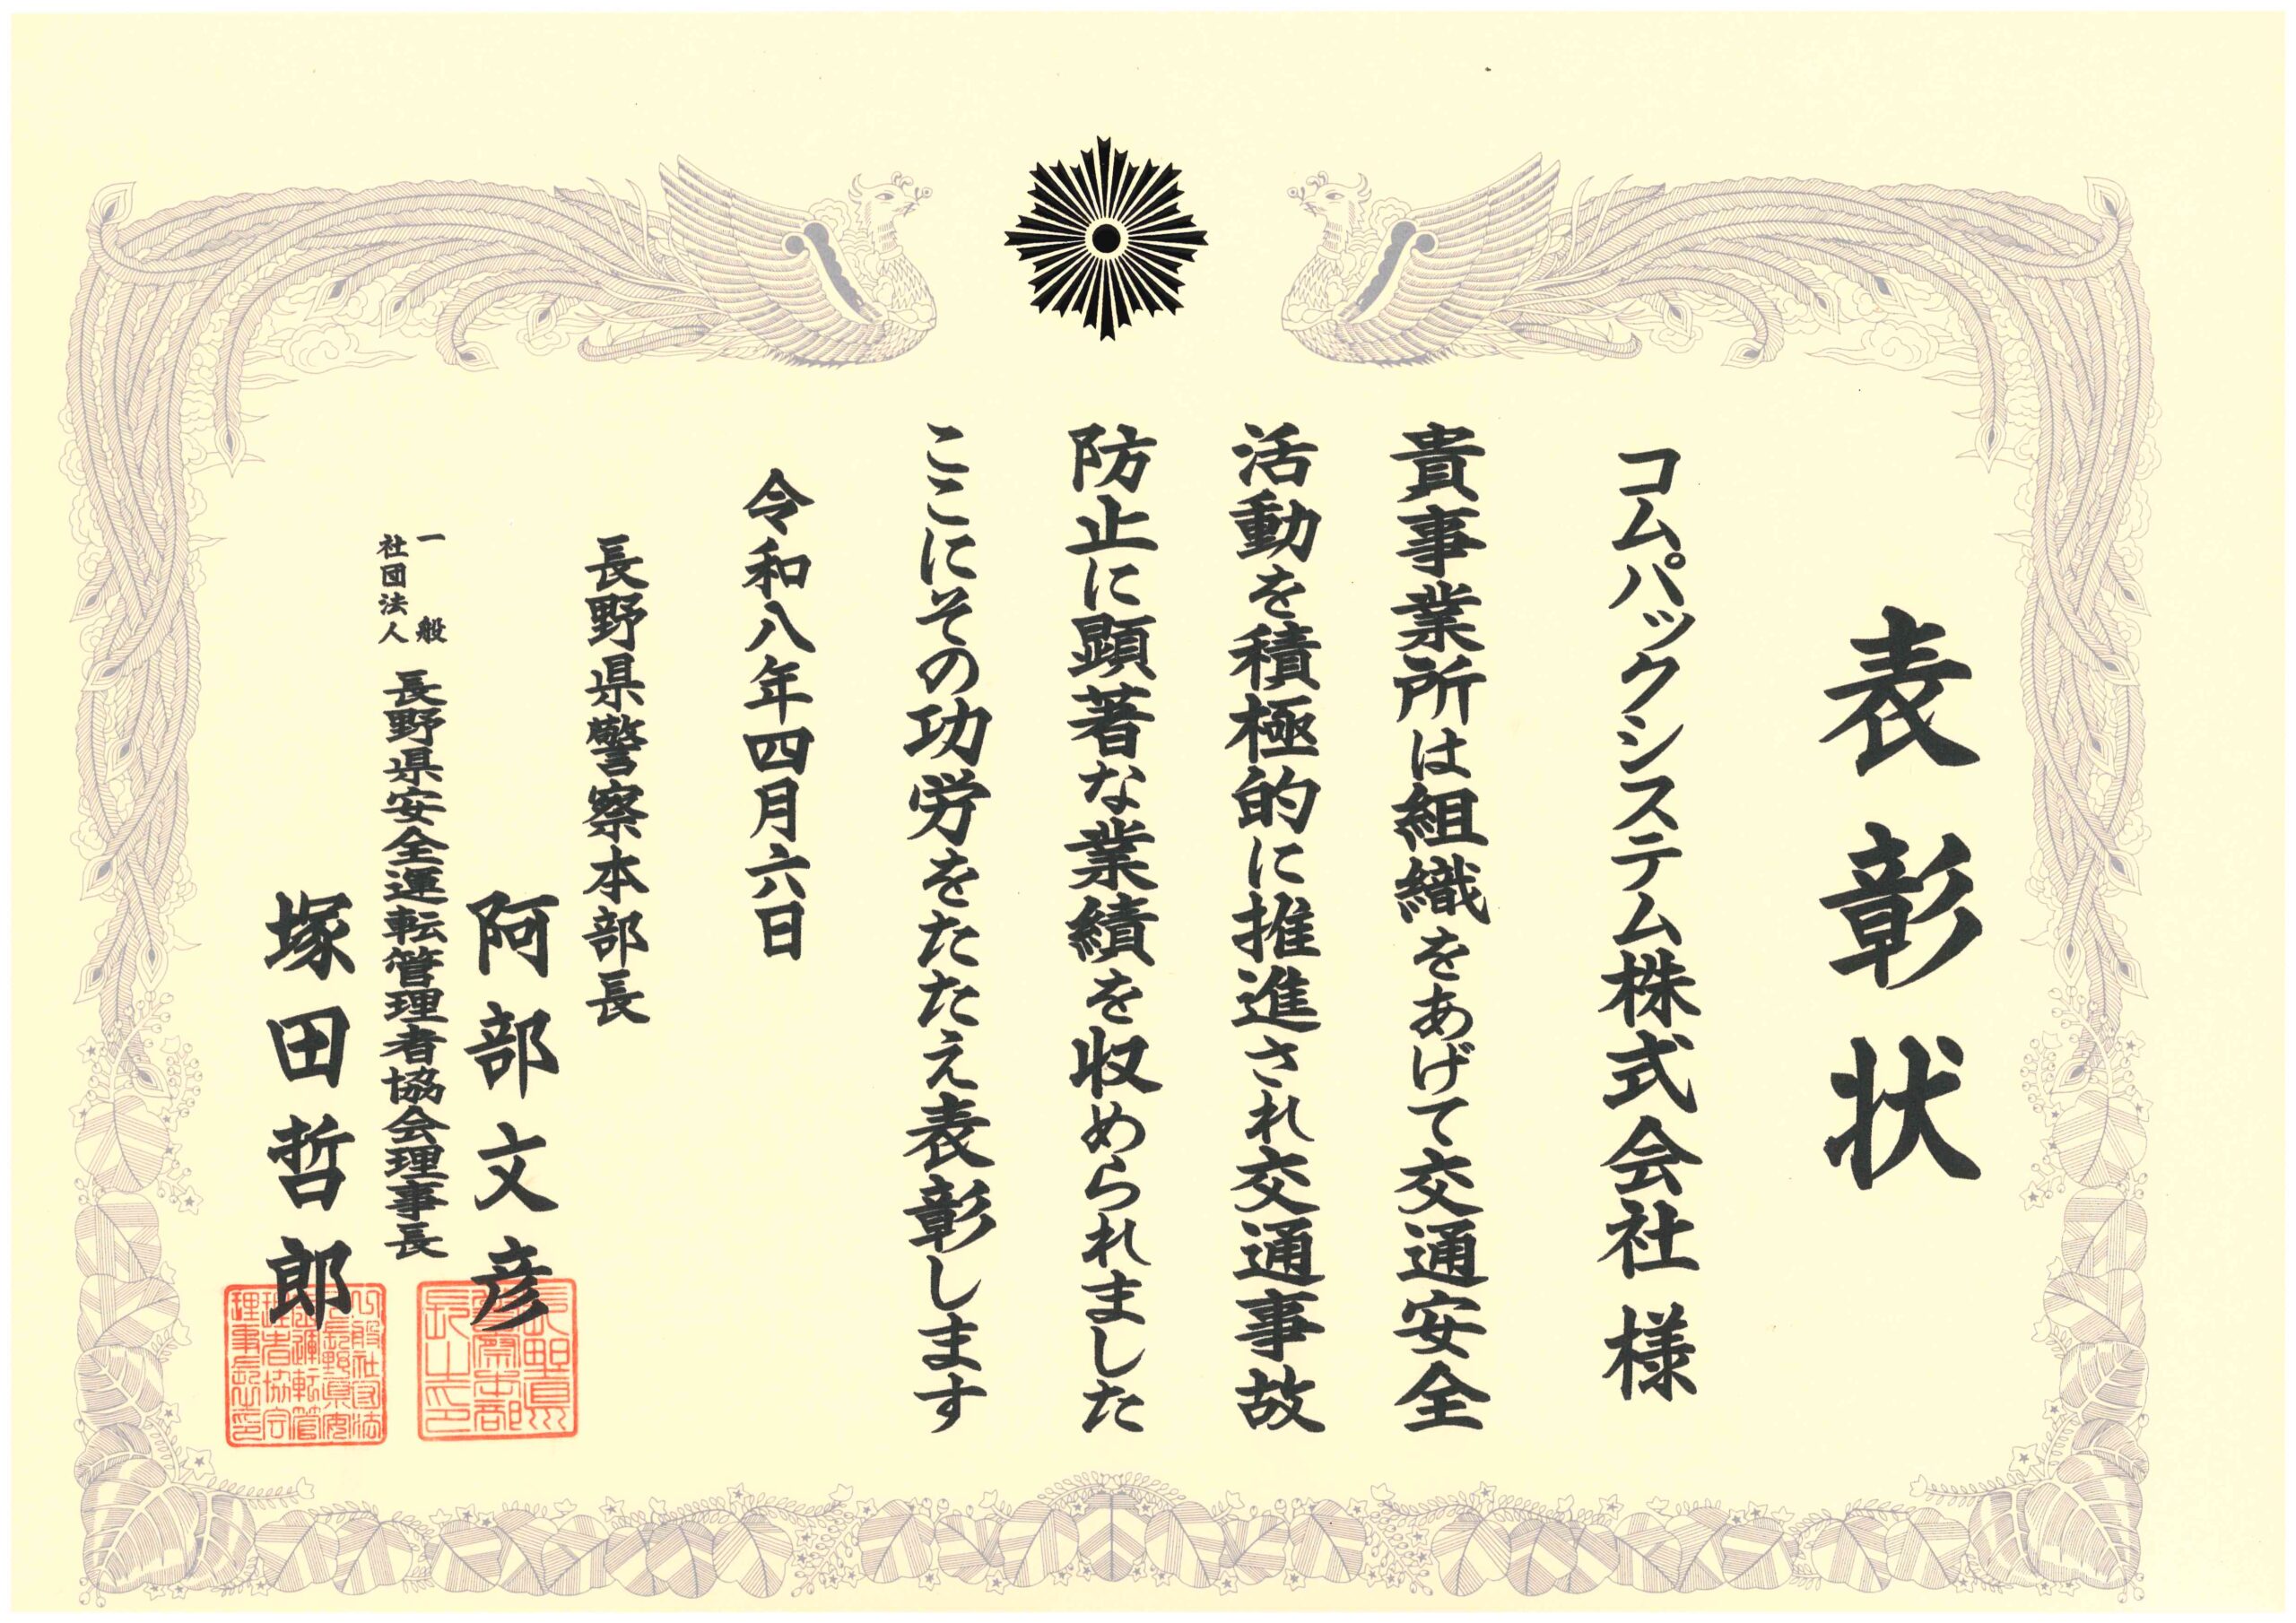 表彰状
コムパックシステム株式会社 様
貴事業所は組織をあげて交通安全
活動を積極的に推進され交通事故
防止に顕著な業績を収められました
ここにその功労をたたえ表彰します
令和八年四月六日
長野県警察本部長
阿部文彦
一般社団法人 長野県安全運転管理者協会理事長
塚田哲郎